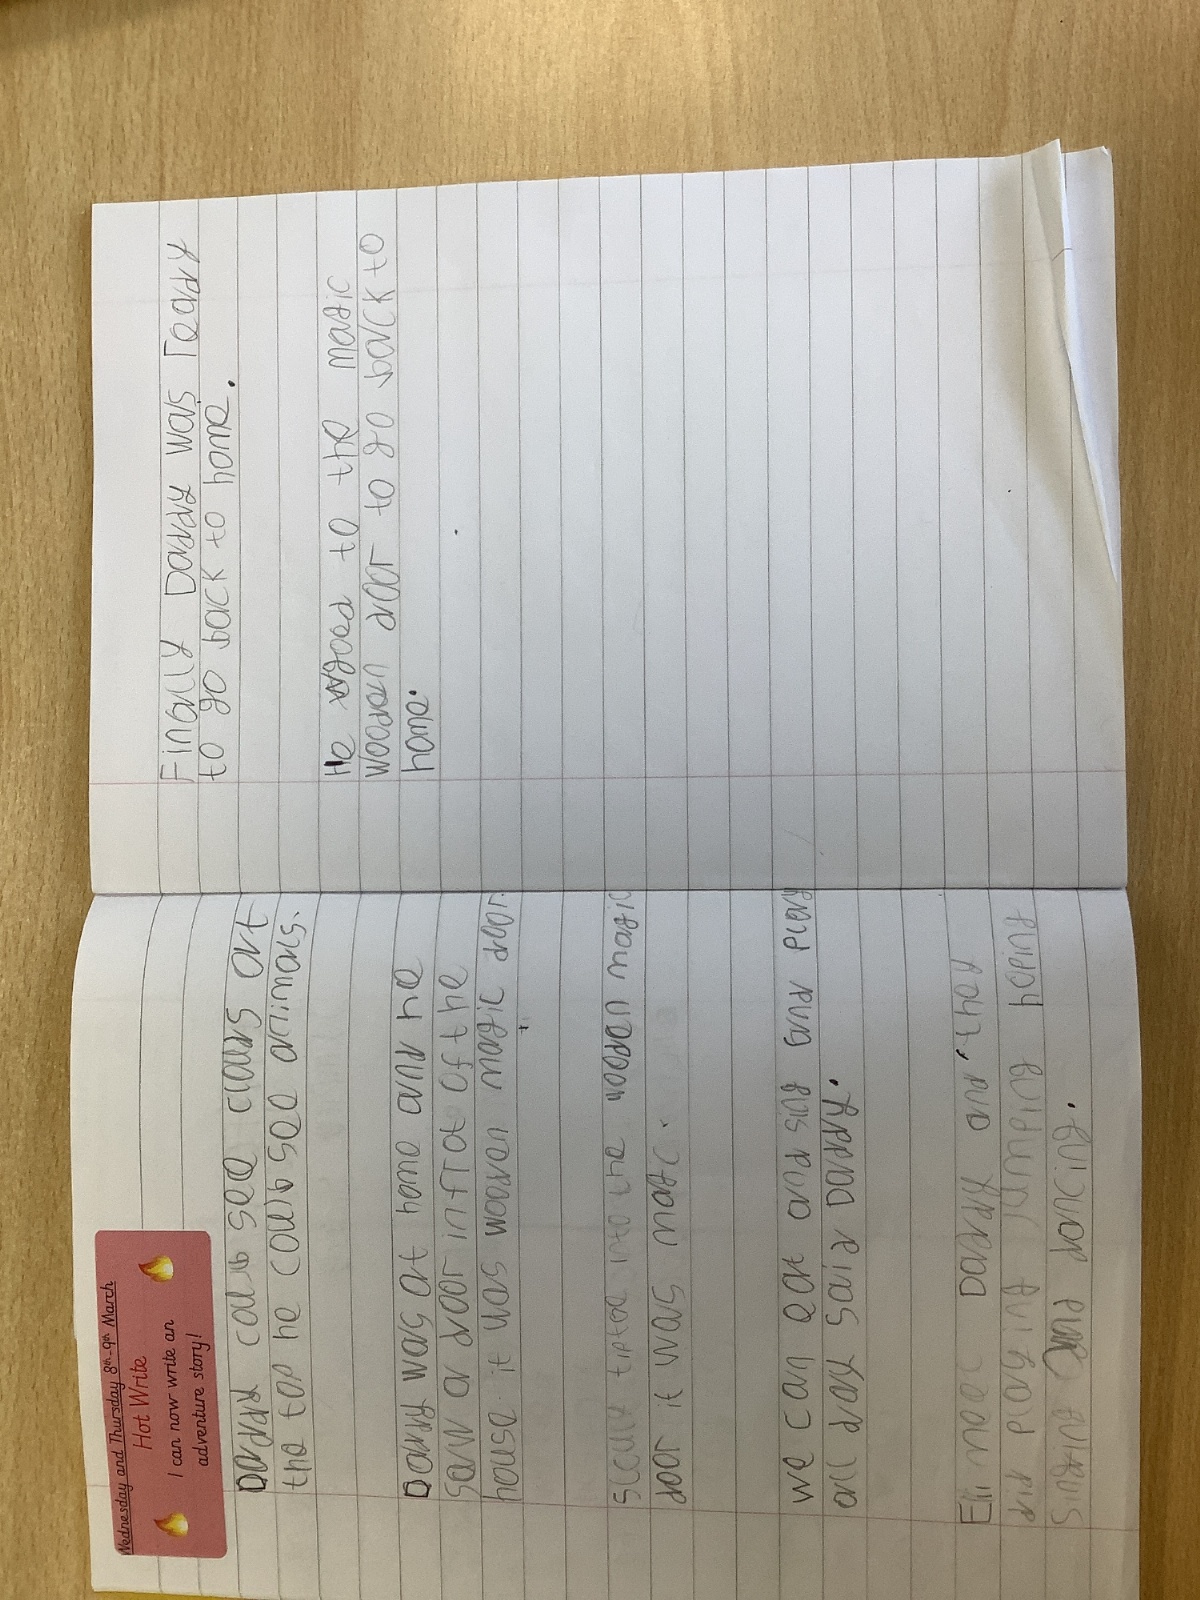 Wednesday and Thursday 8th-9th March
Hot Write
I can now write an
adventure story!
Daddy coulb see clouds at
the top he coulb see animals.
Daddy was at home and he
saw a door in frot of the
house it was wooden magic door.
tiptoe into the wooden magic
door it was matc.
we can eat and sing and play
all day said Daddy.
Daddy and they
did playing jumping hoping
Singing and dancing.
Finally Daddy was ready
to go back to home.
He goed to the magic
wooden door to go back to
home.